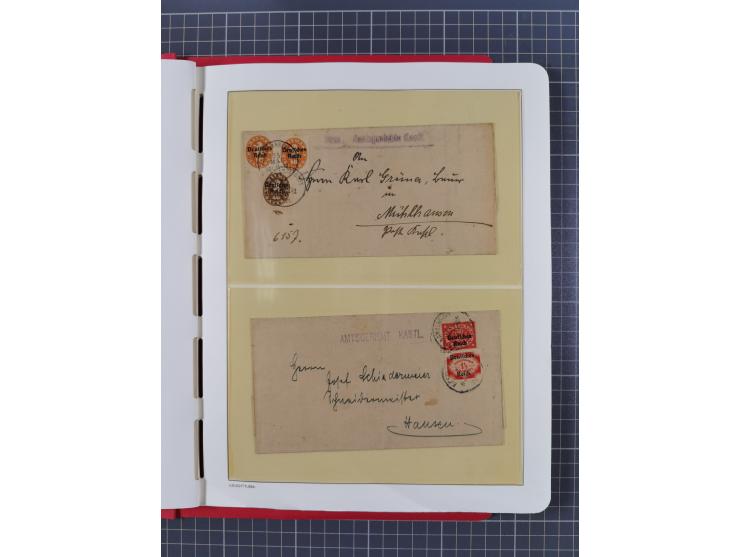 Deutsches
Reich
Deutsches
Reich
Deutsches
Reich
Amtsgericht Kastl.
An
Herrn Karl Grüna, Bauer
in
Mühlhausen
Post Kastl.
6157.
AMTSGERICHT KASTL.
Deutsches
Reich
Deutsches
Reich
Herrn
Josef Schiedermeier
Schneidermeister
Hausen.
LEUCHTTURM